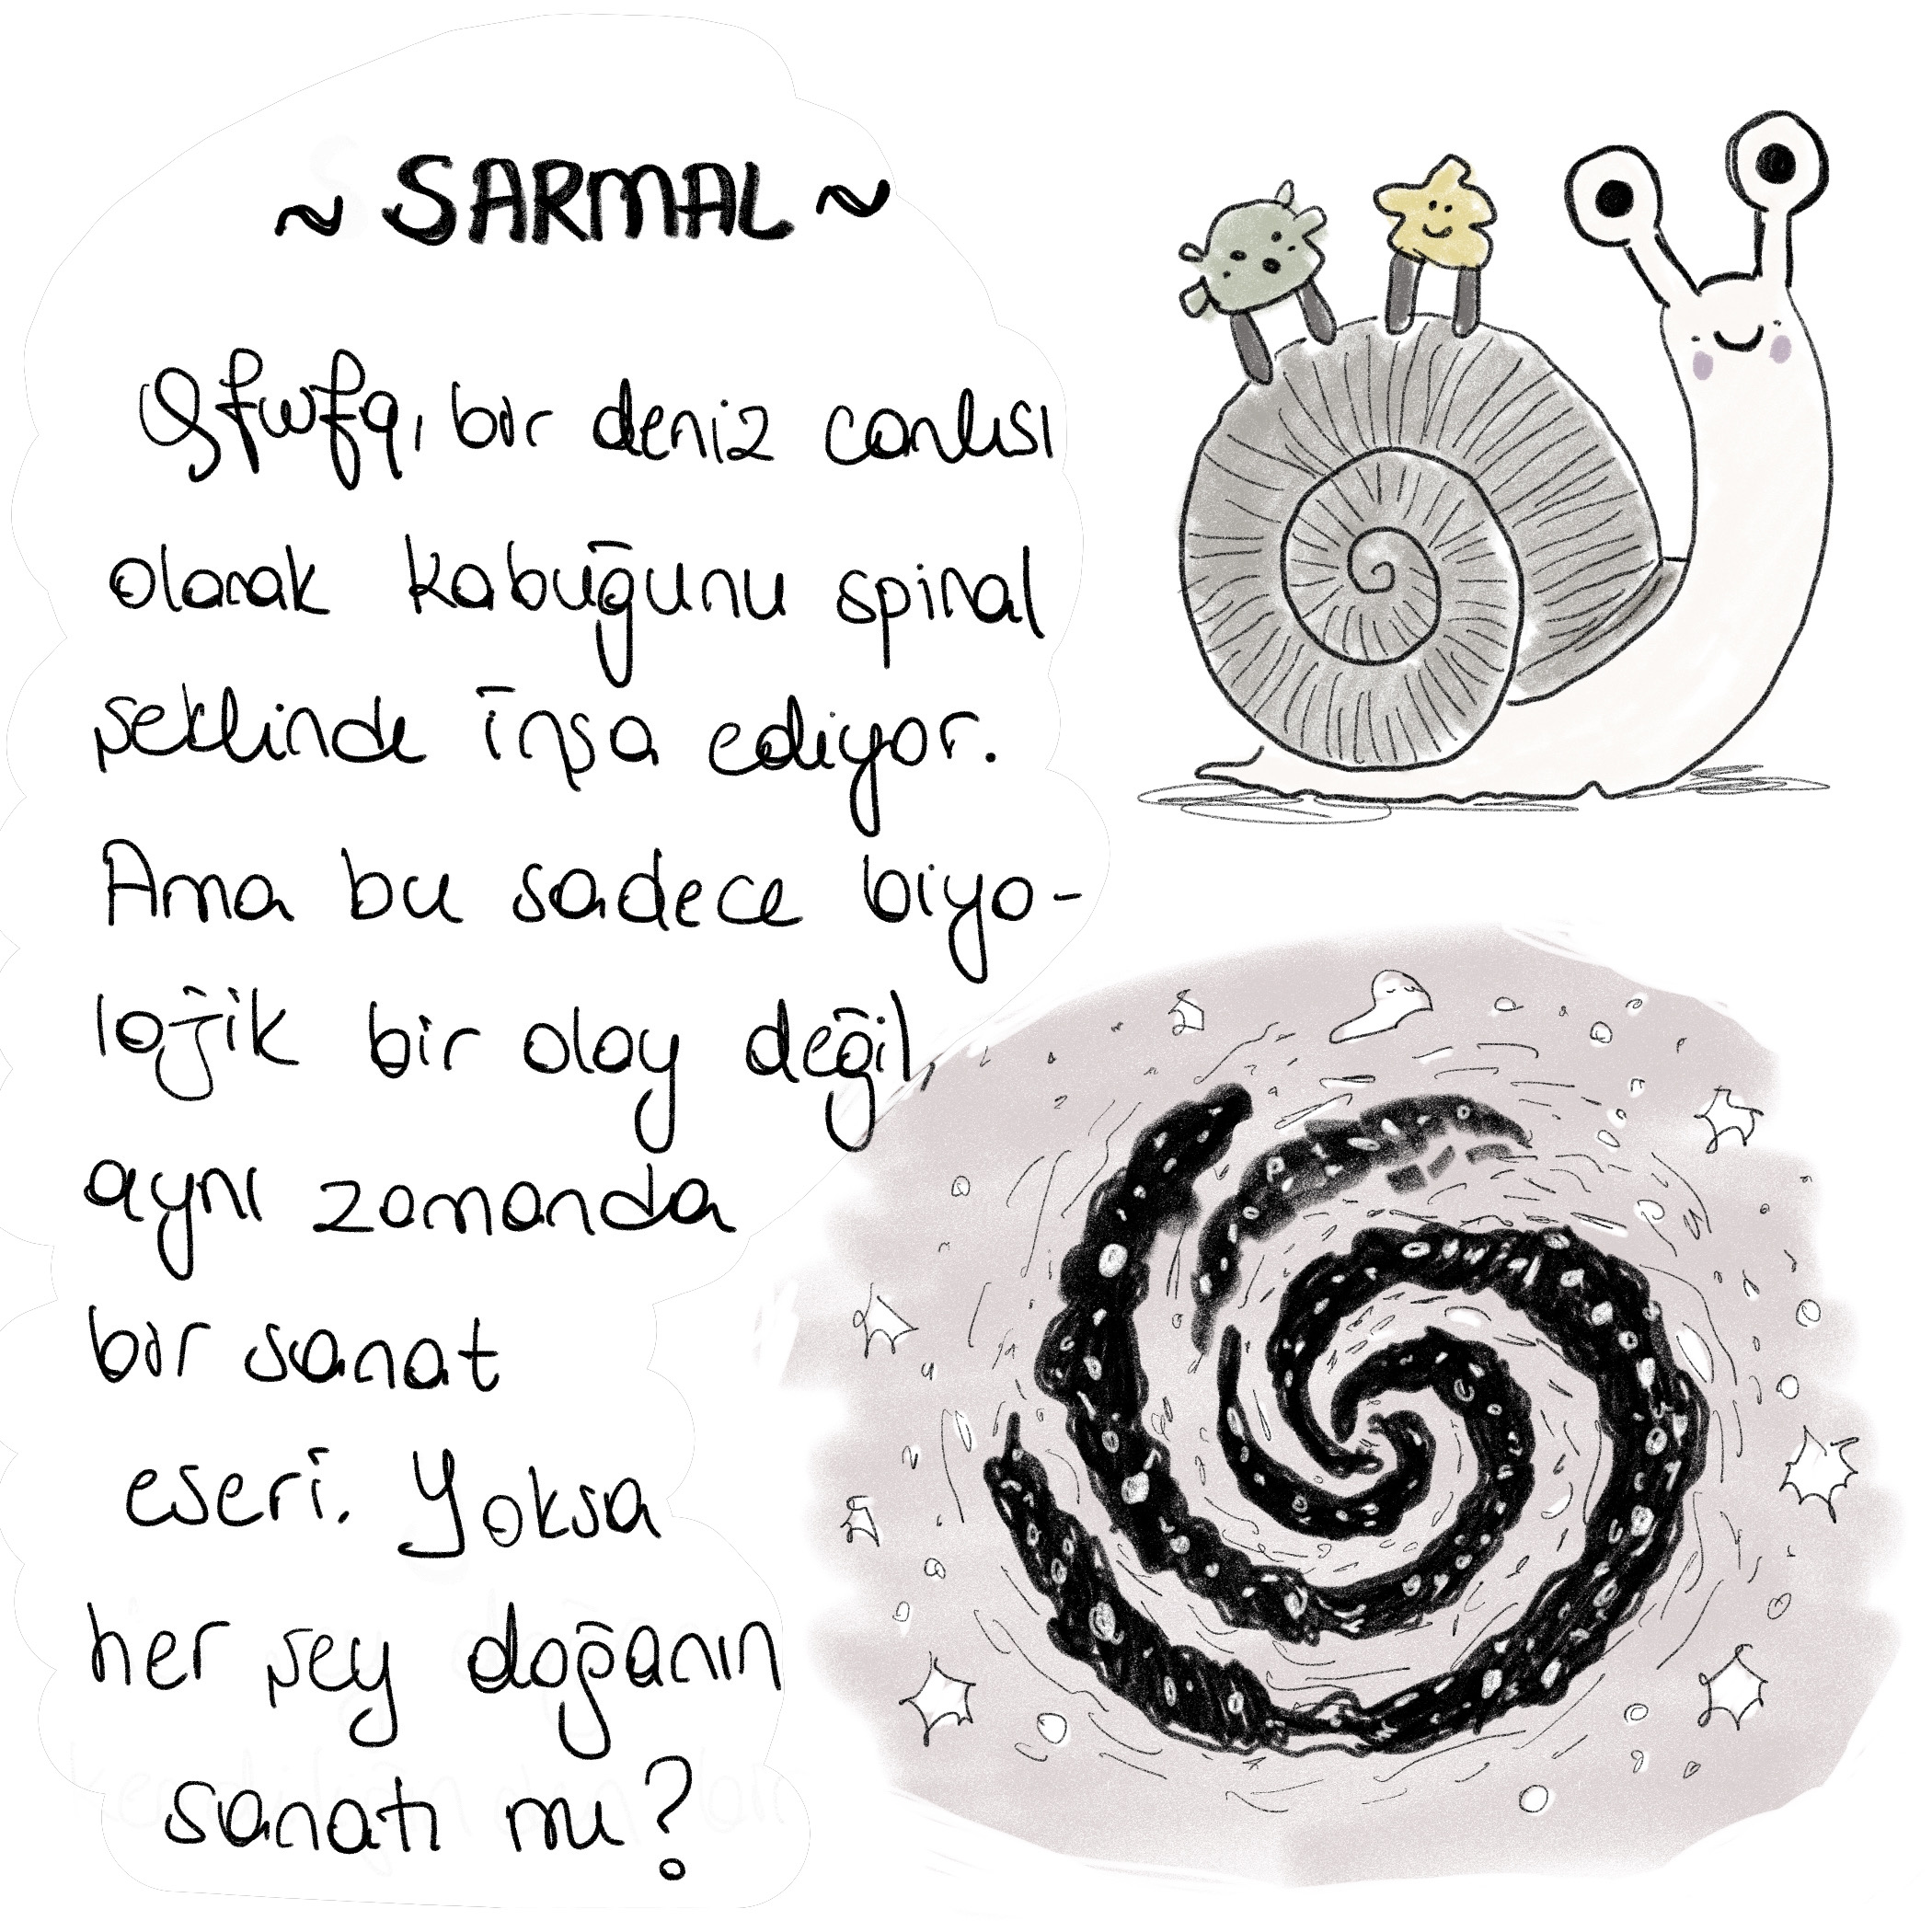 ~ SARMAL ~
Qfwfq, bir deniz canlısı
olarak kabuğunu spiral
şeklinde inşa ediyor.
Ama bu sadece biyo-
lojik bir olay değil,
aynı zamanda
bir sanat
eseri. Yoksa
her şey doğanın
sanatı mı?